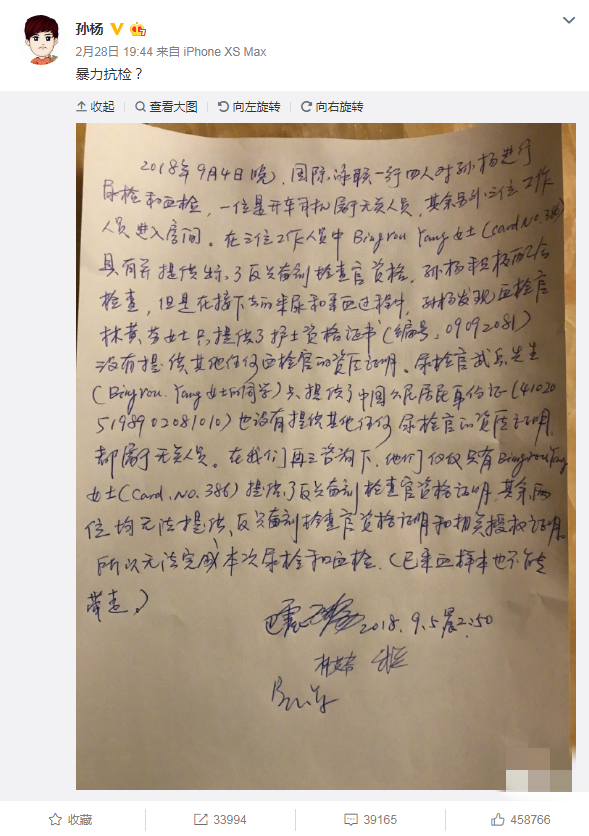 孙杨
2月28日 19:44 来自 iPhone XS Max
暴力抗检？
收起 查看大图 向左旋转 向右旋转
2018年9月4日晚，国际泳联一行四人对孙杨进行
尿检和血检，一位是开车司机属于无关人员，其余另外三位工作
人员进入房间。在三位工作人员中Bingrou Yang女士(card No.386)
具有并提供出示了反兴奋剂检查官资格，孙杨积极配合
检查，但是在接下去的采尿和采血过程中，孙杨发现血检官
林黄芬女士只提供了护士资格证书(编号：09092081)
没有提供其他任何血检官的资质证明。尿检官武兵先生
(Bingrou. Yang女士的同学)只提供了中国公民居民身份证(
)也没有提供其他任何尿检官的资质证明，
都属于无关人员。在我们再三咨询下，他们仅仅只有Bingrou Yang
女士(Card. No. 386)提供了反兴奋剂检查官资格证明，其余两
位均无法提供反兴奋剂检查官资格证明和相关授权证明。
所以无法完成本次尿检和血检.(已采血样本也不能
带走。)
2018.9.5晨2:50
收藏 33994 39165 458766